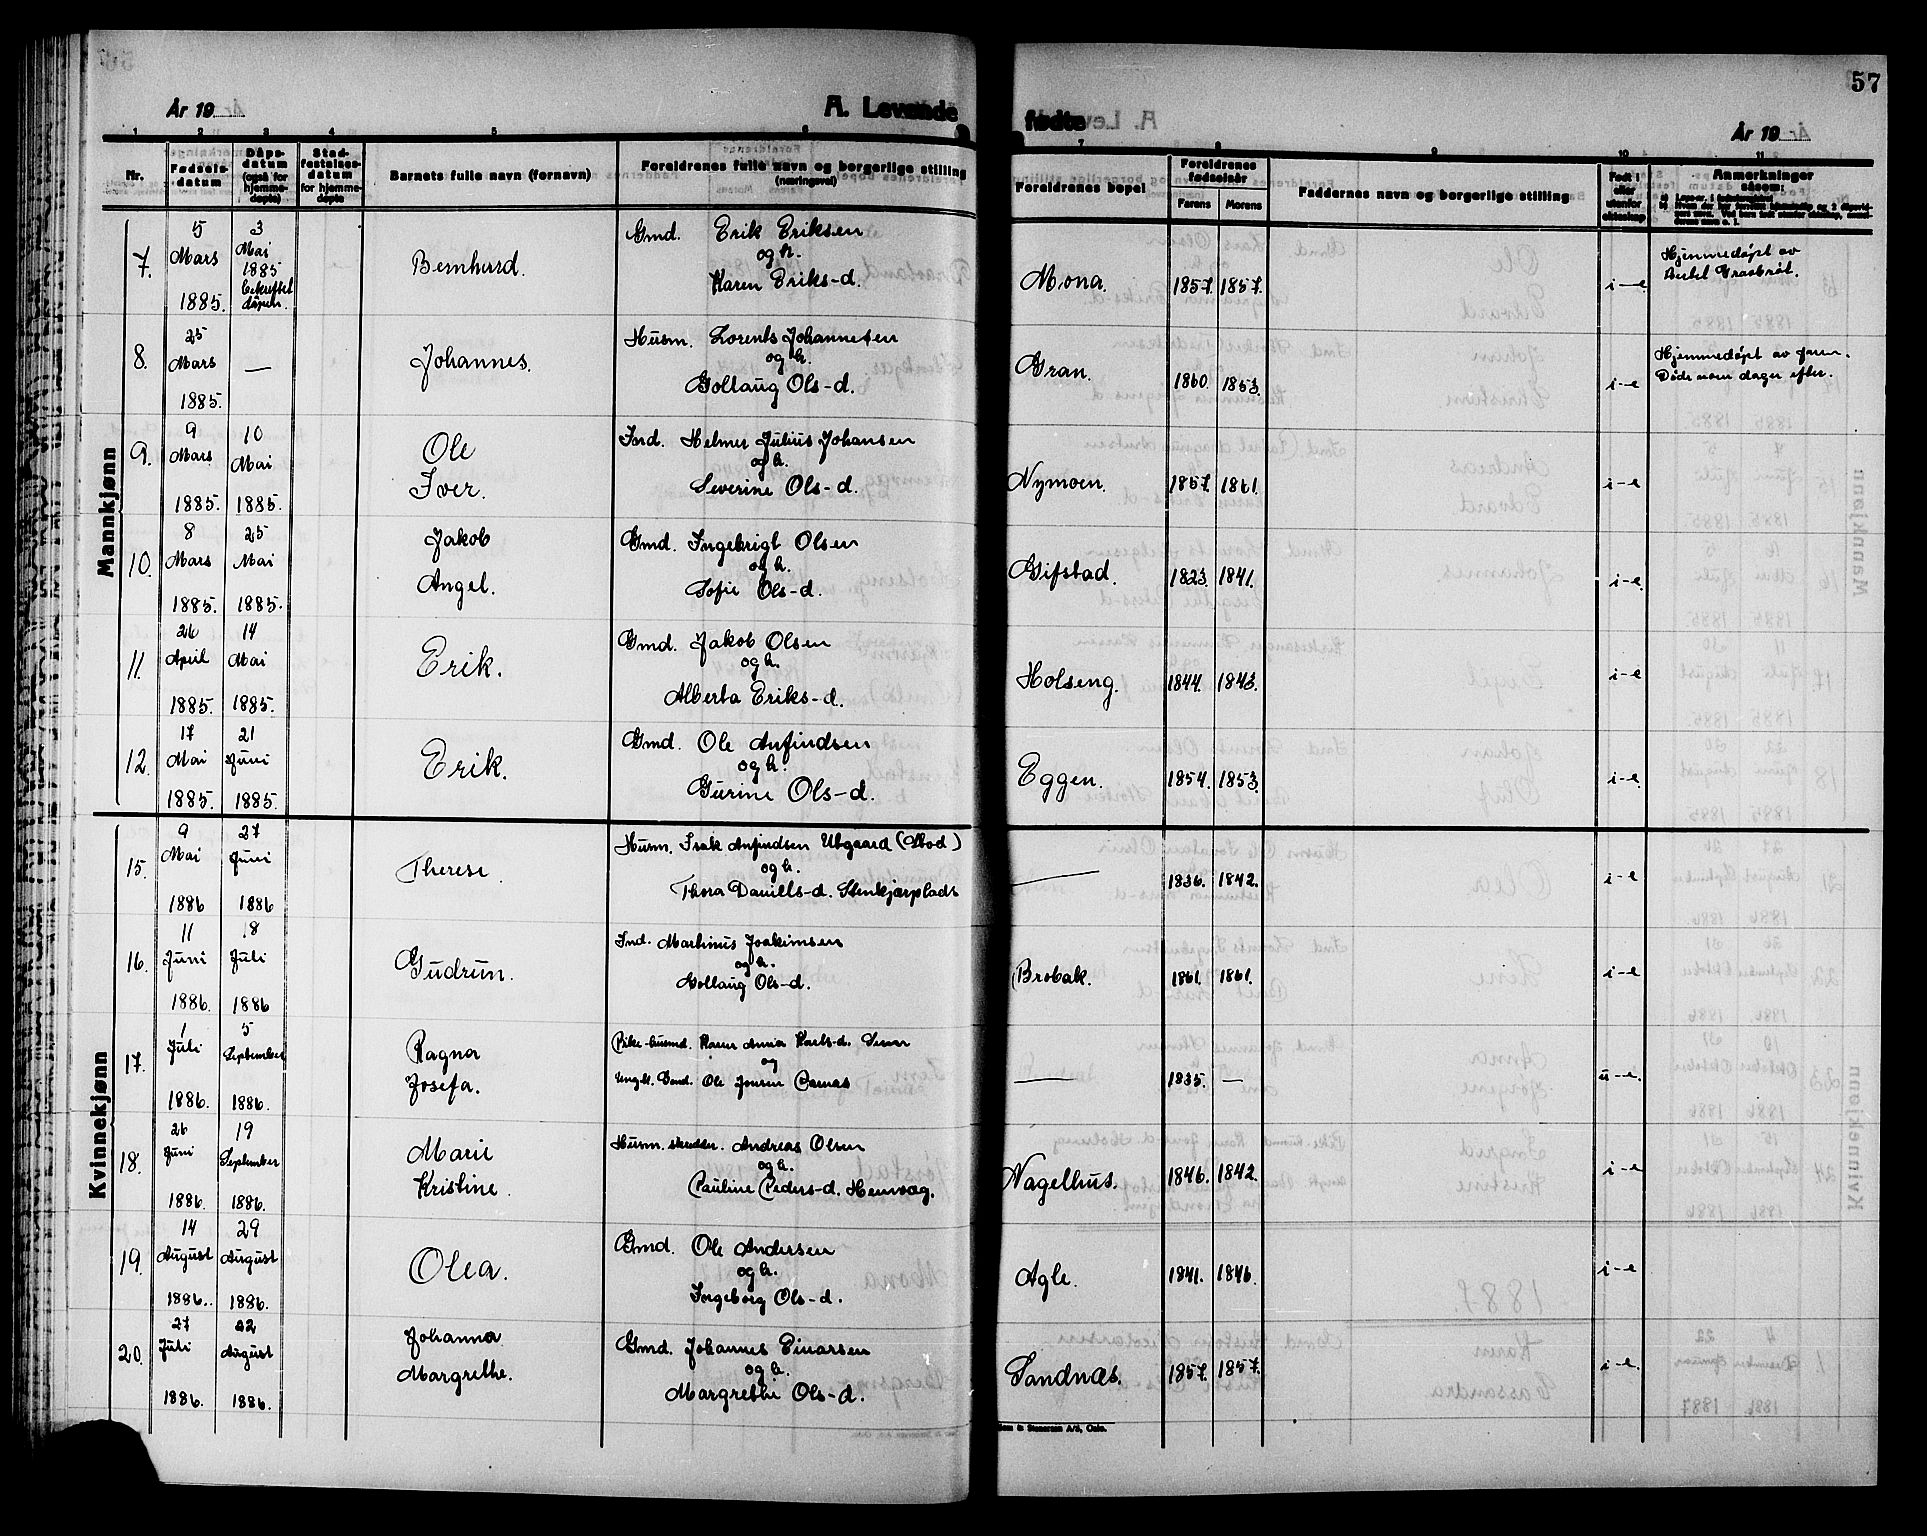 57
År 19
A. Levende
fødte
År 19
1 2 3 4 5 6 7 8 9 10 11
Nr.
Fødselsdatum
Dåpsdatum (også for hjemmedøpte)
Stadfestelsesdatum for hjemmedøpte
Barnets fulle navn (fornavn)
Foreldrenes fulle navn og borgerlige stilling (næringsvei)
Foreldrenes bopel
Foreldrenes fødselsår
Farens Morens
Faddernes navn og borgerlige stilling
Født i eller utenfor ekteskap
Anmerkninger såsom:
Mannkjønn
7. 5 Mars 1885. 3 Mai 1885 bekreftet dåpen. Bernhard. Gmd. Erik Eriksen
og h.
Karen Eriks-d. Mona. 1857. 1857. i-e Hjemmedøpt av
8. 25 Mars 1885. — Johannes. Husm. Lorents Johannesen
og h.
Gollaug Ols-d. Gran. 1860. 1853. i-e Hjemmedøpt av faren.
Døde noen dager efter.
9. 9 Mars 1885. 10 Mai 1885. Ole
Iver. Ind. Helmer Julius Johansen
og h.
Severine Ols-d. Nymoen. 1857. 1861. i-e
10. 8 Mars 1885. 25 Mai 1885. Jakob
Angel. Gmd. Ingebrigt Olsen
og h.
Sofie Ols-d. Gifstad. 1823. 1841. i-e
11. 26 April 1885. 14 Mai 1885. Erik. Gmd. Jakob Olsen
og h.
Alberta Eriks-d. Holseng. 1844. 1843. i-e
12. 17 Mai 1885. 21 Juni 1885. Erik. Gmd. Ole Anfindsen
og h.
Gurine Ols-d. Eggen. 1854. 1853. i-e
Kvinnekjønn
15. 9 Mai 1886 27 Juni 1886 Therese. Husm. Isak Anfindsen
og h.
Thora Daniels-d. Stenkjærplads — 1836. 1842. i-e
16. 11 Juni 1886. 18 Juli 1886 Gudrun. Ind. Martinus Joakimsen
og h.
Gollaug Ols-d. Brobak. 1861. 1861. i-e
17. 1 Juli 1886. 5 September 1886. Ragna
Josefa. Pike-husmd. Karen Anna Karls-d.
og
Ungk. Ole Jonsen — 1835. — u-e.
18. 26 Juni 1886. 19 September 1886. Marie
Kristine. Husm. skredder. Andreas Olsen
og h.
Pauline Peders-d. Nagelhus. 1846. 1842. i-e
19. 14 August 1886. 29 August 1886. Olea. Gmd. Ole Andersen
og h.
Ingeborg Ols-d. Agle. 1841. 1846. i-e
20. 27 Juli 1886. 22 August 1886. Johanna
Margrethe. Gmd. Johannes Einarsen
og h.
Margrethe Ols-d. Sandnæs. 1857. 1857. i-e.